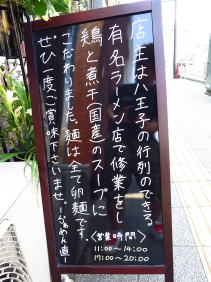 店主は八王子の行列のできる
有名ラーメン店で修業をし
鶏と煮干(国産)のスープに
こだわりました。麺は全て卵麺です。
ぜひ一度ご賞味下さいませ。
〈営業時間〉
11:00〜14:00
17:00〜20:00